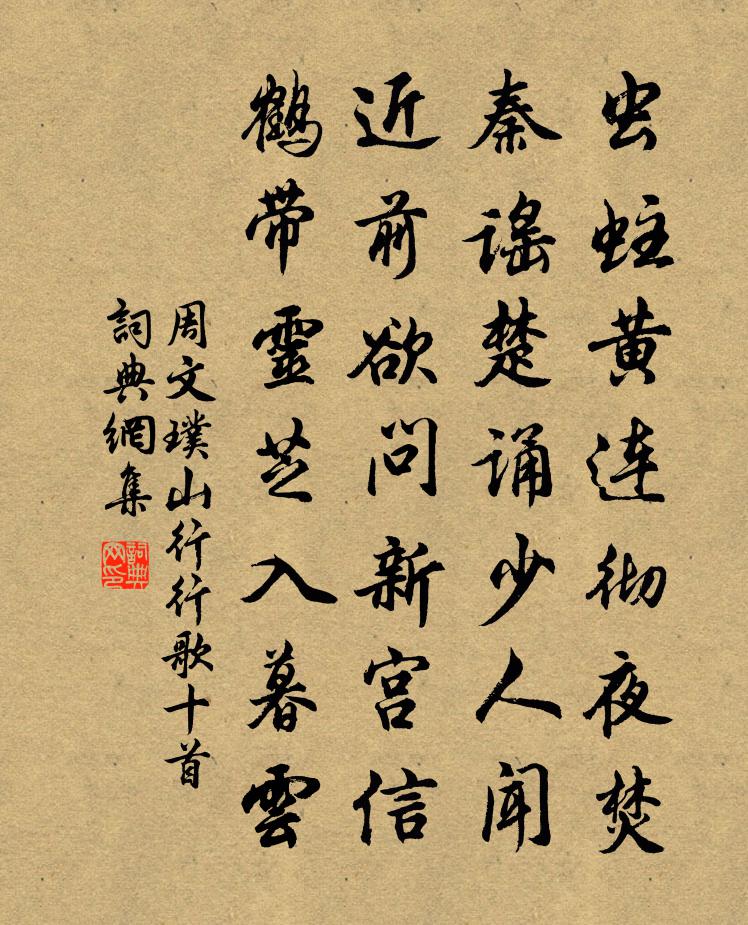 虫蛀黄连彻夜焚
秦谣楚诵少人闻
近前欲问新宫信
鹤带靈芝入暮雲
周文璞山行行歌十首
詞典網集
詞典网印